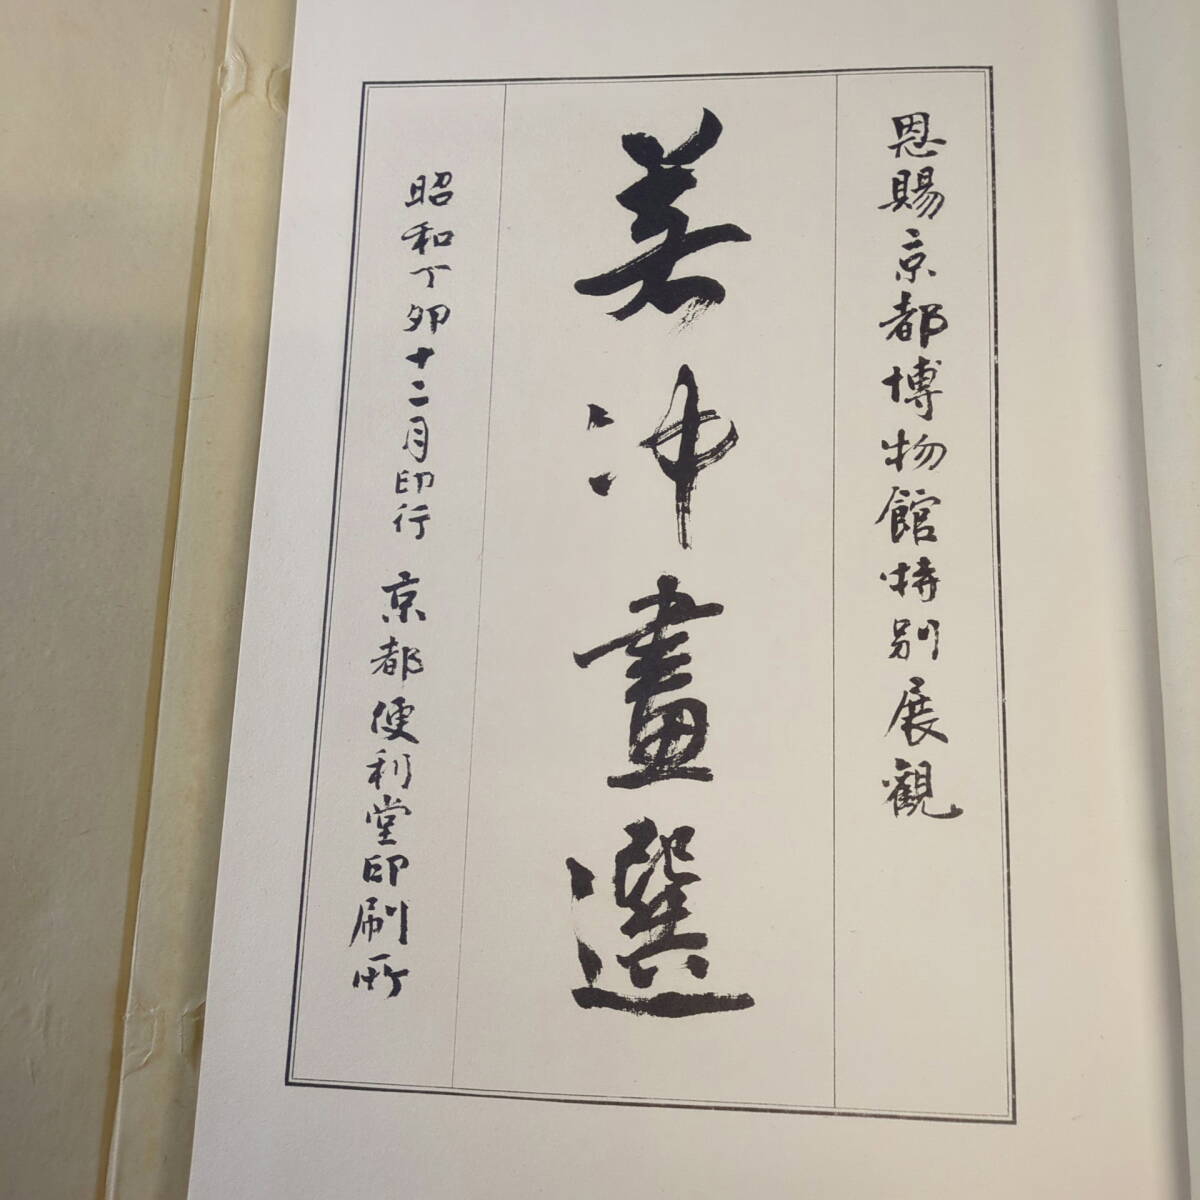 恩賜京都博物館特別展観
若冲畫選
昭和丁卯十二月印行 京都便利堂印刷所